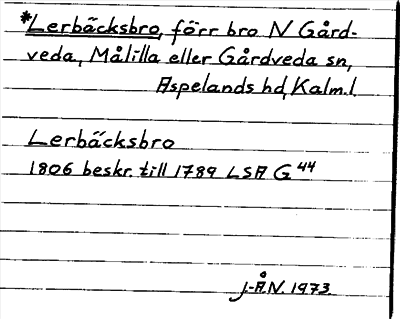 *Lerbäcksbro, förr bro N Gård-
veda, Målilla eller Gårdveda sn,
Aspelands hd, Kalm.l
Lerbäcksbro
1806 beskr. till 1789 LSA G 44
J.-Å.N. 1973